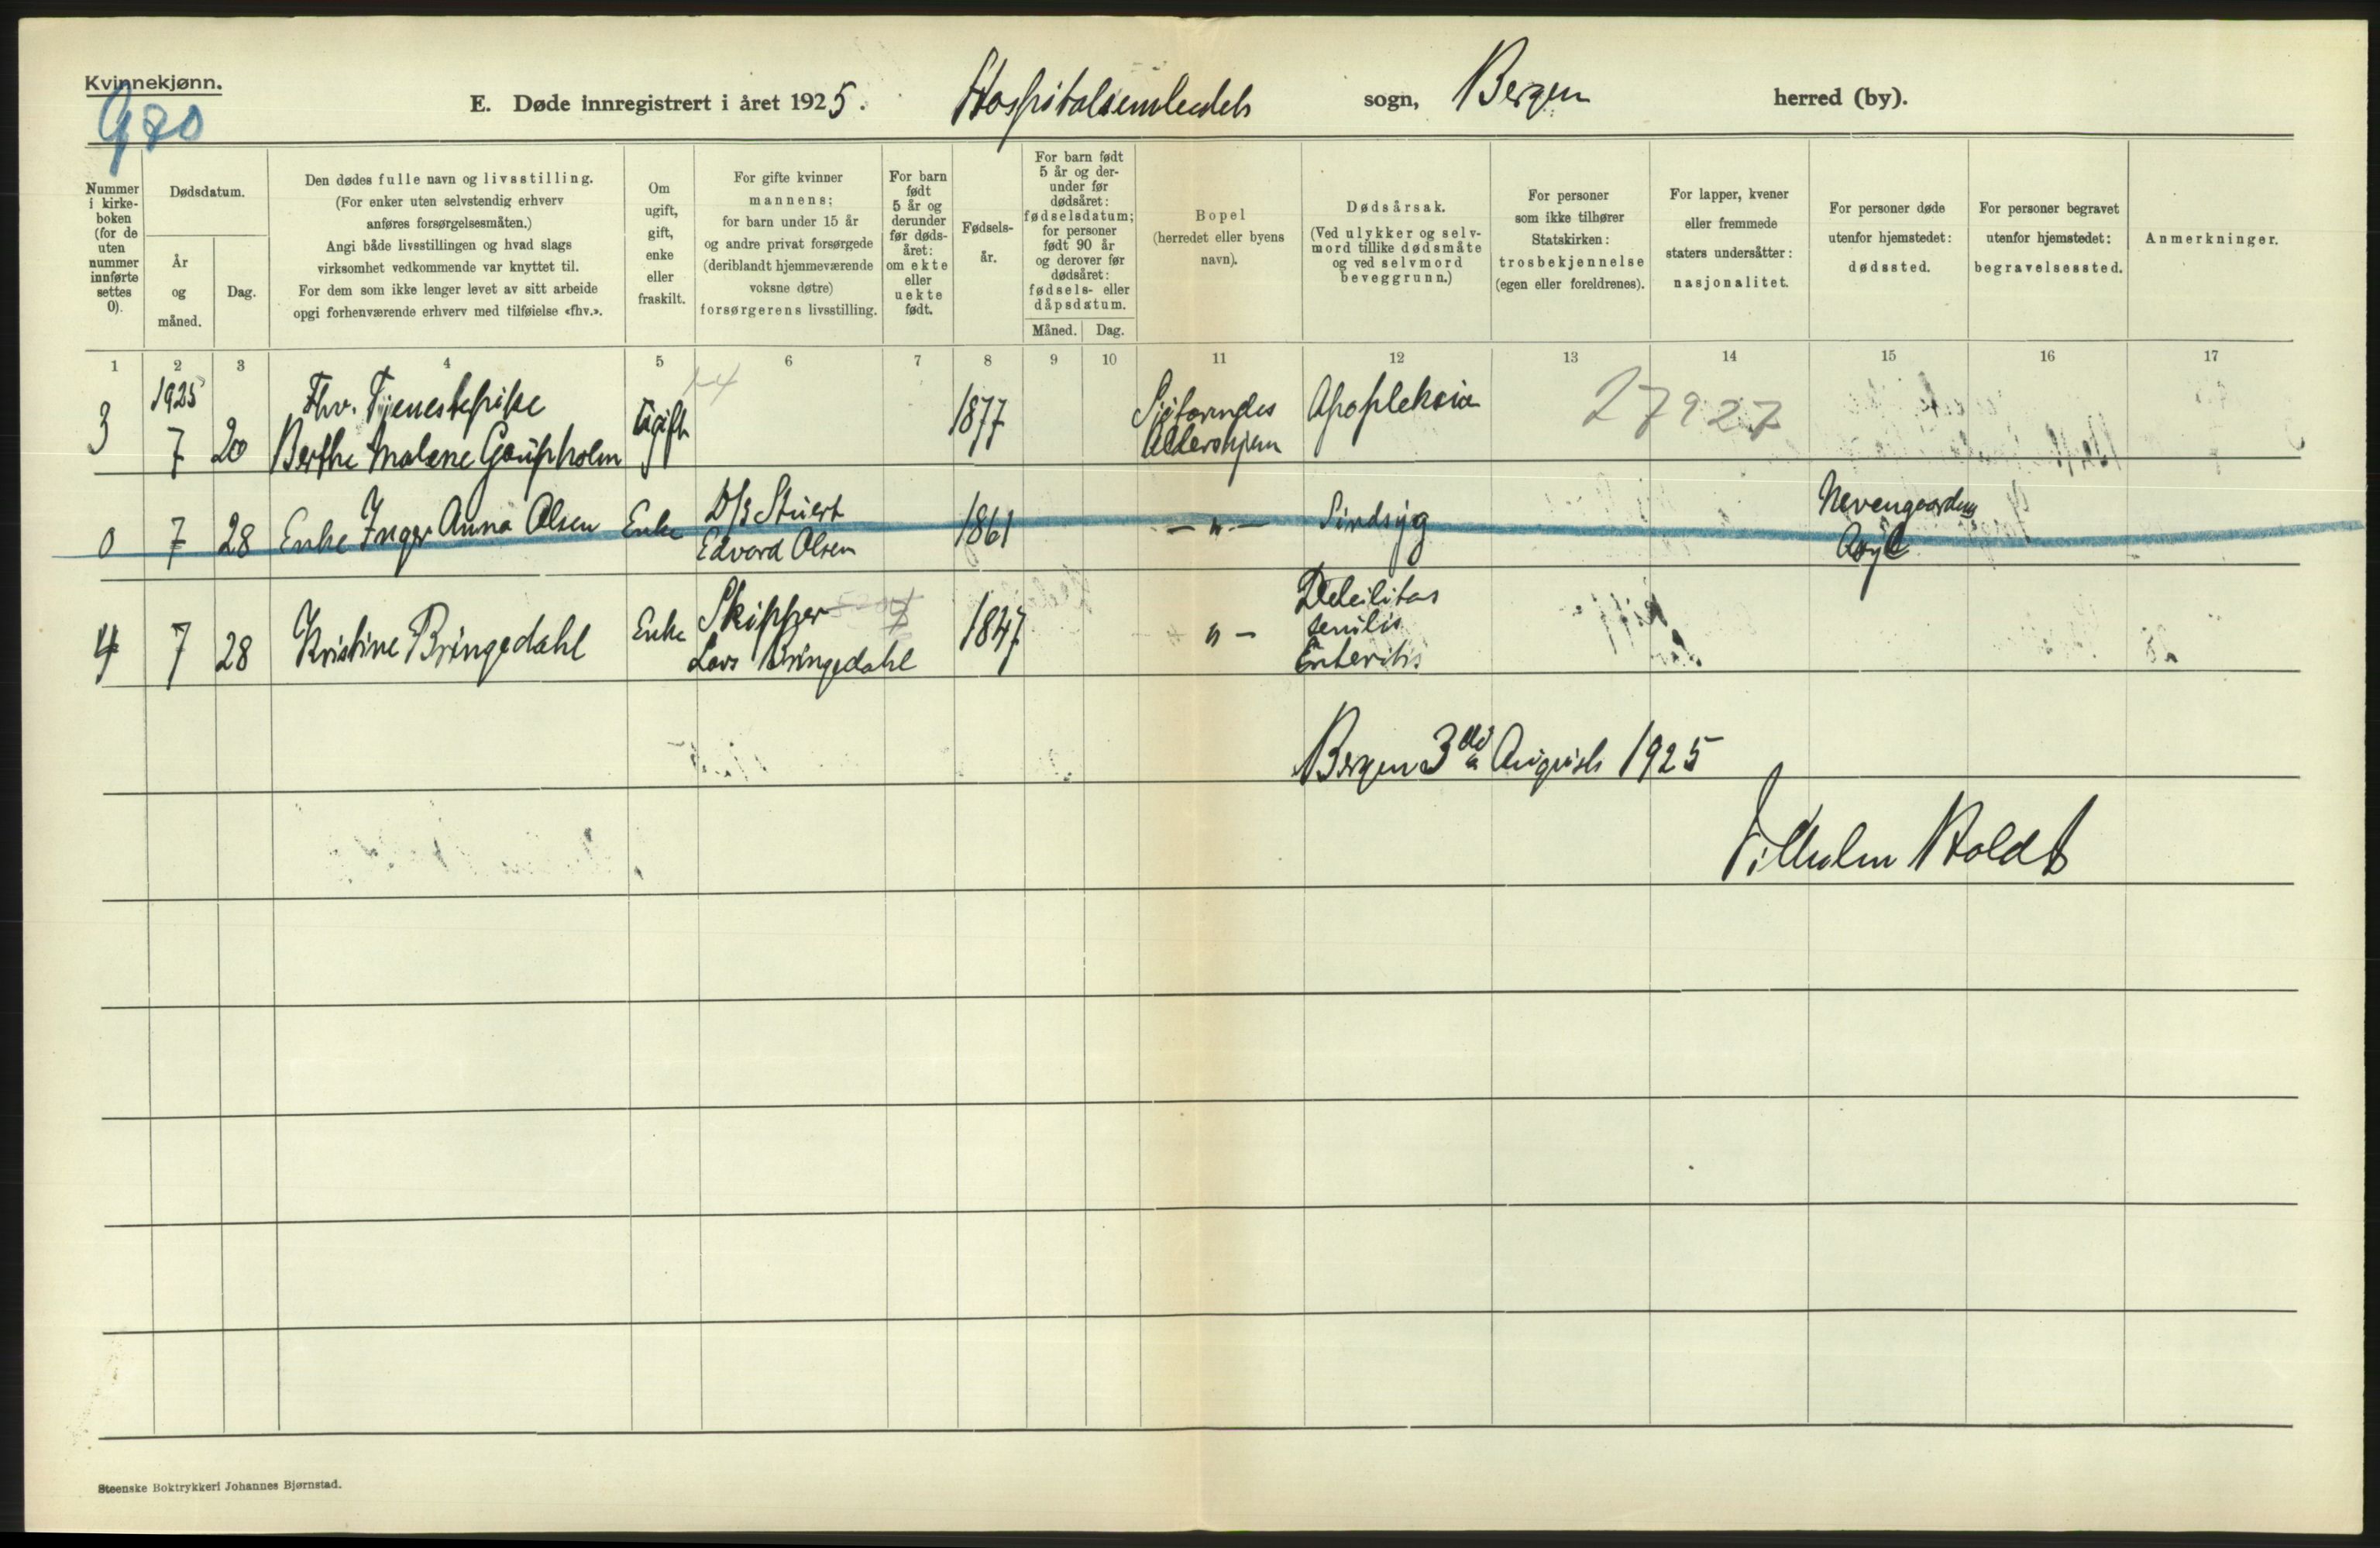 Kvinnekjønn.
980
E. Døde innregistrert i året 1925. Hospitalsembedets sogn, Bergen herred (by).
Nummer
i kirke-
boken
(for de
uten
nummer
innførte
settes
0).
Dødsdatum.
År
og
måned.
Dag.
Den dødes fulle navn og livsstilling.
(For enker uten selvstendig erhverv
anføres forsørgelsesmåten.)
Angi både livsstillingen og hvad slags
virksomhet vedkommende var knyttet til.
For dem som ikke lenger levet av sitt arbeide
opgi forhenværende erhverv med tilføielse «fhv.».
Om
ugift,
gift,
enke
eller
fraskilt.
For gifte kvinner
mannens;
for barn under 15 år
og andre privat forsørgede
(deriblandt hjemmeværende
voksne døtre)
forsørgerens livsstilling.
For barn
født
5 år og
derunder
før døds-
året:
om ekte
eller
uekte
født.
Fødsels-
år.
For barn født
5 år og der-
under før
dødsåret:
fødselsdatum;
for personer
født 90 år
og derover før
dødsåret:
fødsels- eller
dåpsdatum.
Måned. Dag.
Bopel
(herredet eller byens
navn).
Dødsårsak.
(Ved ulykker og selv-
mord tillike dødsmåte
og ved selvmord
beveggrunn.)
For personer
som ikke tilhører
Statskirken:
trosbekjennelse
(egen eller foreldrenes).
For lapper, kvener
eller fremmede
staters undersåtter:
nasjonalitet.
For personer døde
utenfor hjemstedet:
dødssted.
For personer begravet
utenfor hjemstedet:
begravelsessted.
Anmerkninger.
1 2 3 4 5 6 7 8 9 10 11 12 13 14 15 16 17
1925 Fhv. Tjenestepike
3 7 20 Berthe Malene Gaupholm Ugift 1877 Sjøforsrgdes Apopleksia 27927
Aldershjem
D/S Stuert Nevengaardens
0 7 28 Enke Inger Anna Olsen Enke 1861 — " — Sindsyg
Edvard Olsen Asyl
Skipper Debilitas
4 7 28 Kristine Bringedahl Enke 1847 " — senilis
Lars Bringedahl Enteritis
Bergen 3die August 1925
Vilhelm Holdt
Steenske Boktrykkeri Johannes Bjørnstad.